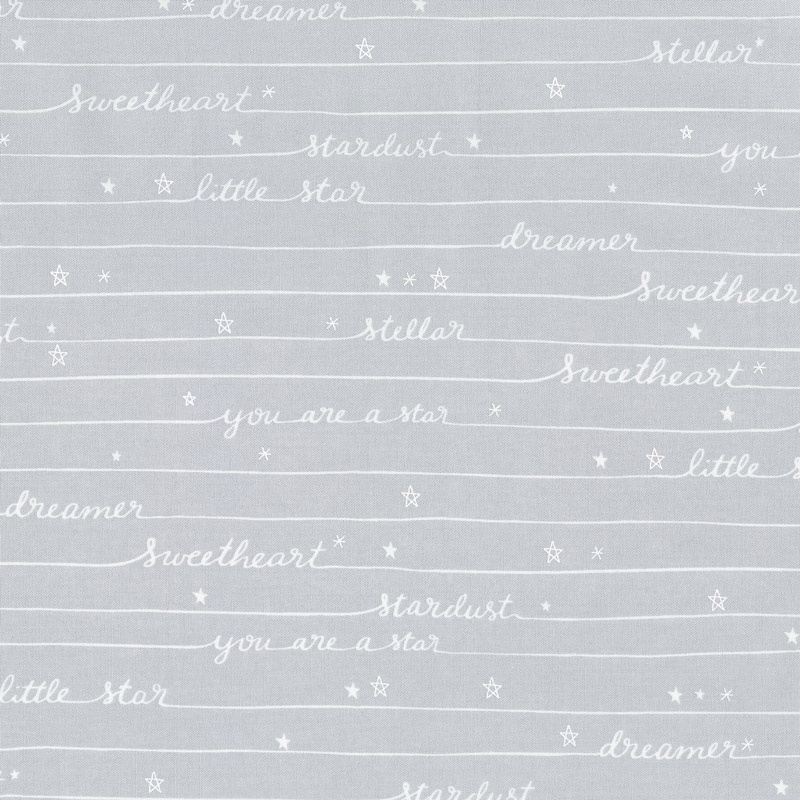 r dreamer
stellar
sweetheart
stardust you
little star
dreamer
sweethear
t stellar
sweetheart
you are a star
little s
dreamer
sweetheart
stardust
you are a star
little star
dreamer
stardust